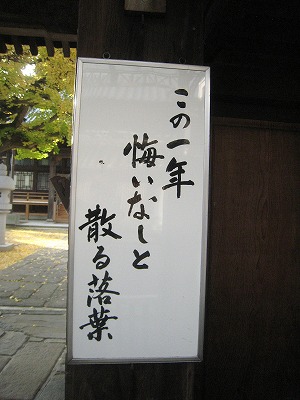 この一年
悔いなしと
散る落葉